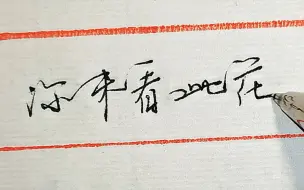 你来看此花